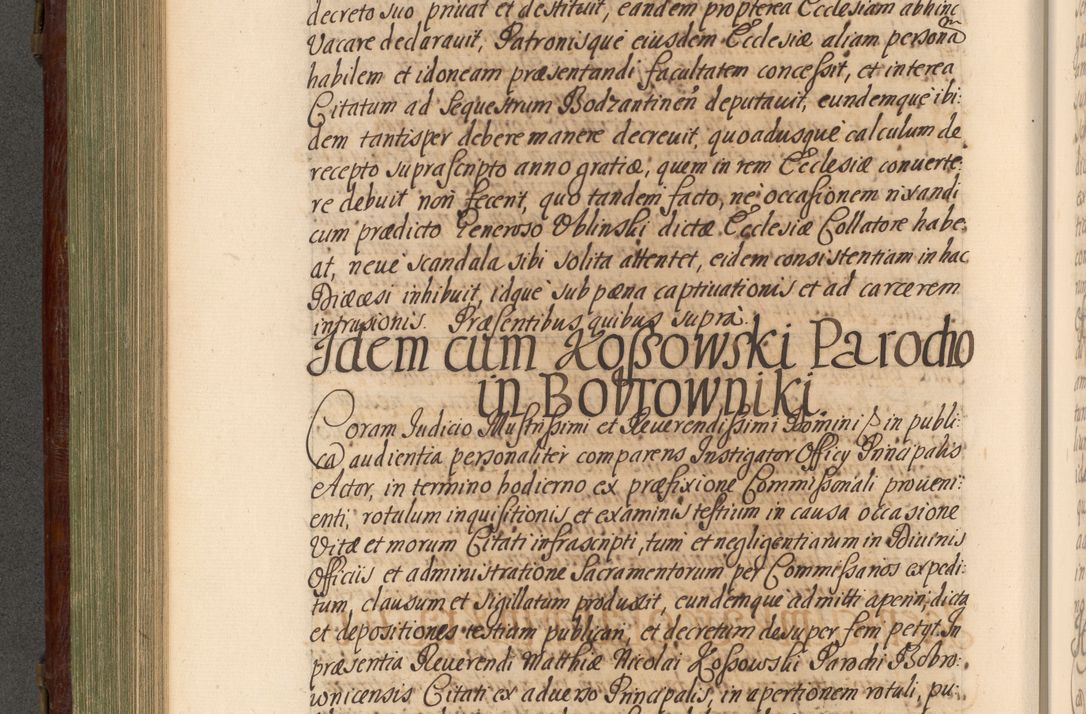 decreto suo privat et destituit, eandem propterea Ecclesiam abhinc
Vacare declarauit, Patronisque eiusdem Ecclesiæ aliam personã
habilem et idoneam præsentandi facultatem concessit, et interea
Citatum ad Sequestrum Bodzantinen̄ deputauit, eundemque ibi:
dem tantisper debere manere decreuit, quoadusque calculum de
recepto suprascripto anno gratiæ, quem in rem Ecclesiæ conuerte:
re debuit non fecerit, quo tandem facto, ne occasionem rixandi
cum prædicto Generoso Oblinski dictæ Ecclesiæ Collatore habe:
at, neue scandala sibi solita attentet, eidem consistentiam in hac
Diæcesi inhibuit, idque sub pæna captiuationis et ad carcerem
intrusionis. Præsentibus quibus supra.
Idem cum Kossowski Parocho
in Bobrowniki.
Coram Iudicio Illustrissimi et Reuerendissimi Domini in publi:
ca audientia personaliter comparens Instigator Officy Principalis
Actor, in termino hodierno ex præfixione Commissonali proueni:
enti, rotulum inquisitionis et examinis testium in causa occasione
Vitæ et morum Citati infrascripti, tum et negligentiarum in Diuinis
Officiis et administratione Sacramentorum per Commissarios expedi:
tum, clausum et sigillatum produxit, eundemque admitti aperiri, dicta
et depositiones testium publicari, et decretum desuper ferri petyt. In
præsentia Reuerendi Matthiæ Nicolai Kossowski Parochi Bobro:
wnicensis Citati ex aduerso Principalis, in apertionem rotuli, pu: